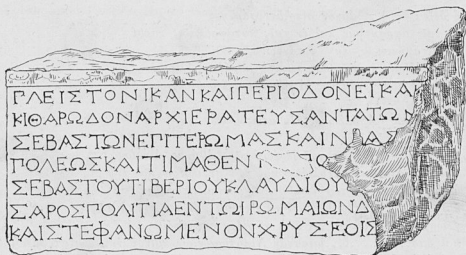 ΠΛΕΙΣΤΟΝΙΚΑΝΚΑΙΠΕΡΙΟΔΟΝΕΙΚΑΝ
ΚΙΘΑΡΩΔΟΝΑΡΧΙΕΡΑΤΕΥΣΑΝΤΑΤΩΝ
ΣΕΒΑΣΤΩΝΕΠΙΤΕΡΩΜΑΣΚΑΙΝ ΑΣ
ΠΟΛΕΩΣΚΑΙΤΙΜΑΘΕΝΤ
ΣΕΒΑΣΤΟΥΤΙΒΕΡΙΟΥΚΛΑΥΔΙΟΥ
ΣΑΡΟΣΠΟΛΙΤΙΑΕΝΤΩΙΡΩΜΑΙΩΝΔ
ΚΑΙΣΤΕΦΑΝΩΜΕΝΟΝΧΡΥΣΕΟΙΣ